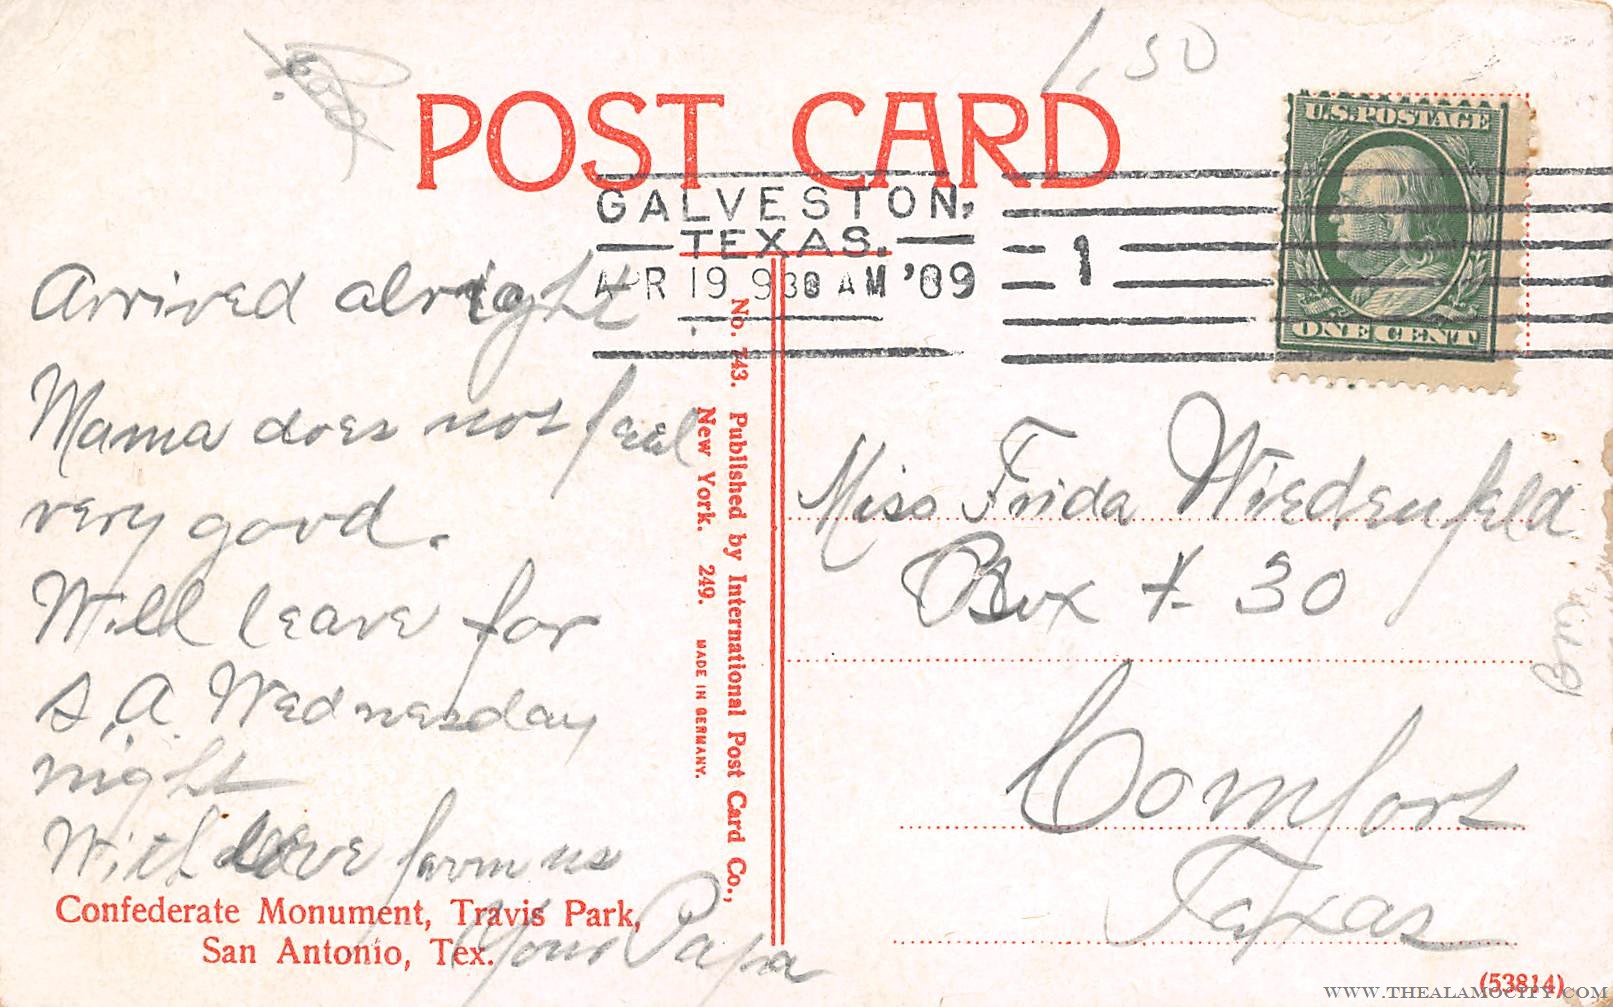 1,50
POST CARD
U.S. POSTAGE
ONE CENT
GALVESTON,
TEXAS.
APR 19 930 AM '09
1
Arrived alright
Mama does not feel
very good.
Will leave for
S.A. Wednesday
night
With love from us
Your Papa
Confederate Monument, Travis Park,
San Antonio, Tex.
No. 743. Published by International Post Card Co.,
New York. 249. MADE IN GERMANY.
Miss Frida Wiedenfeld
Box # 30
Comfort
Texas
(53814)
WWW.THEALAMOCITY.COM